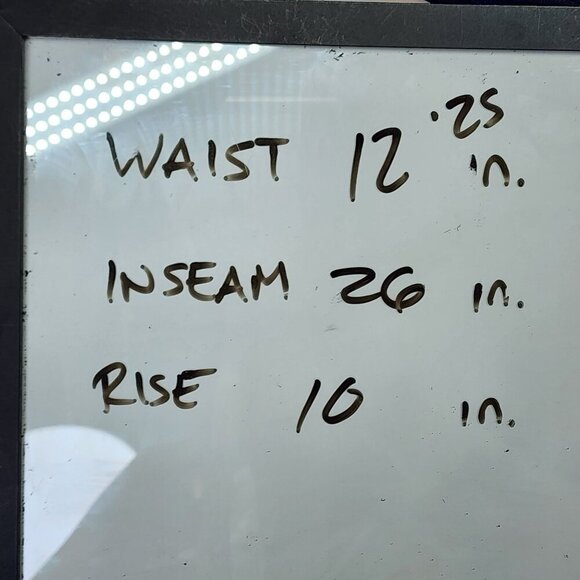 WAIST 12.25 in.
INSEAM 26 in.
RISE 10 in.